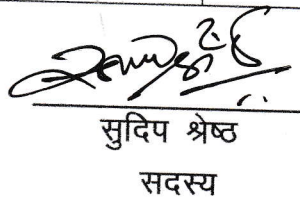 सुदिप श्रेष्ठ
सदस्य